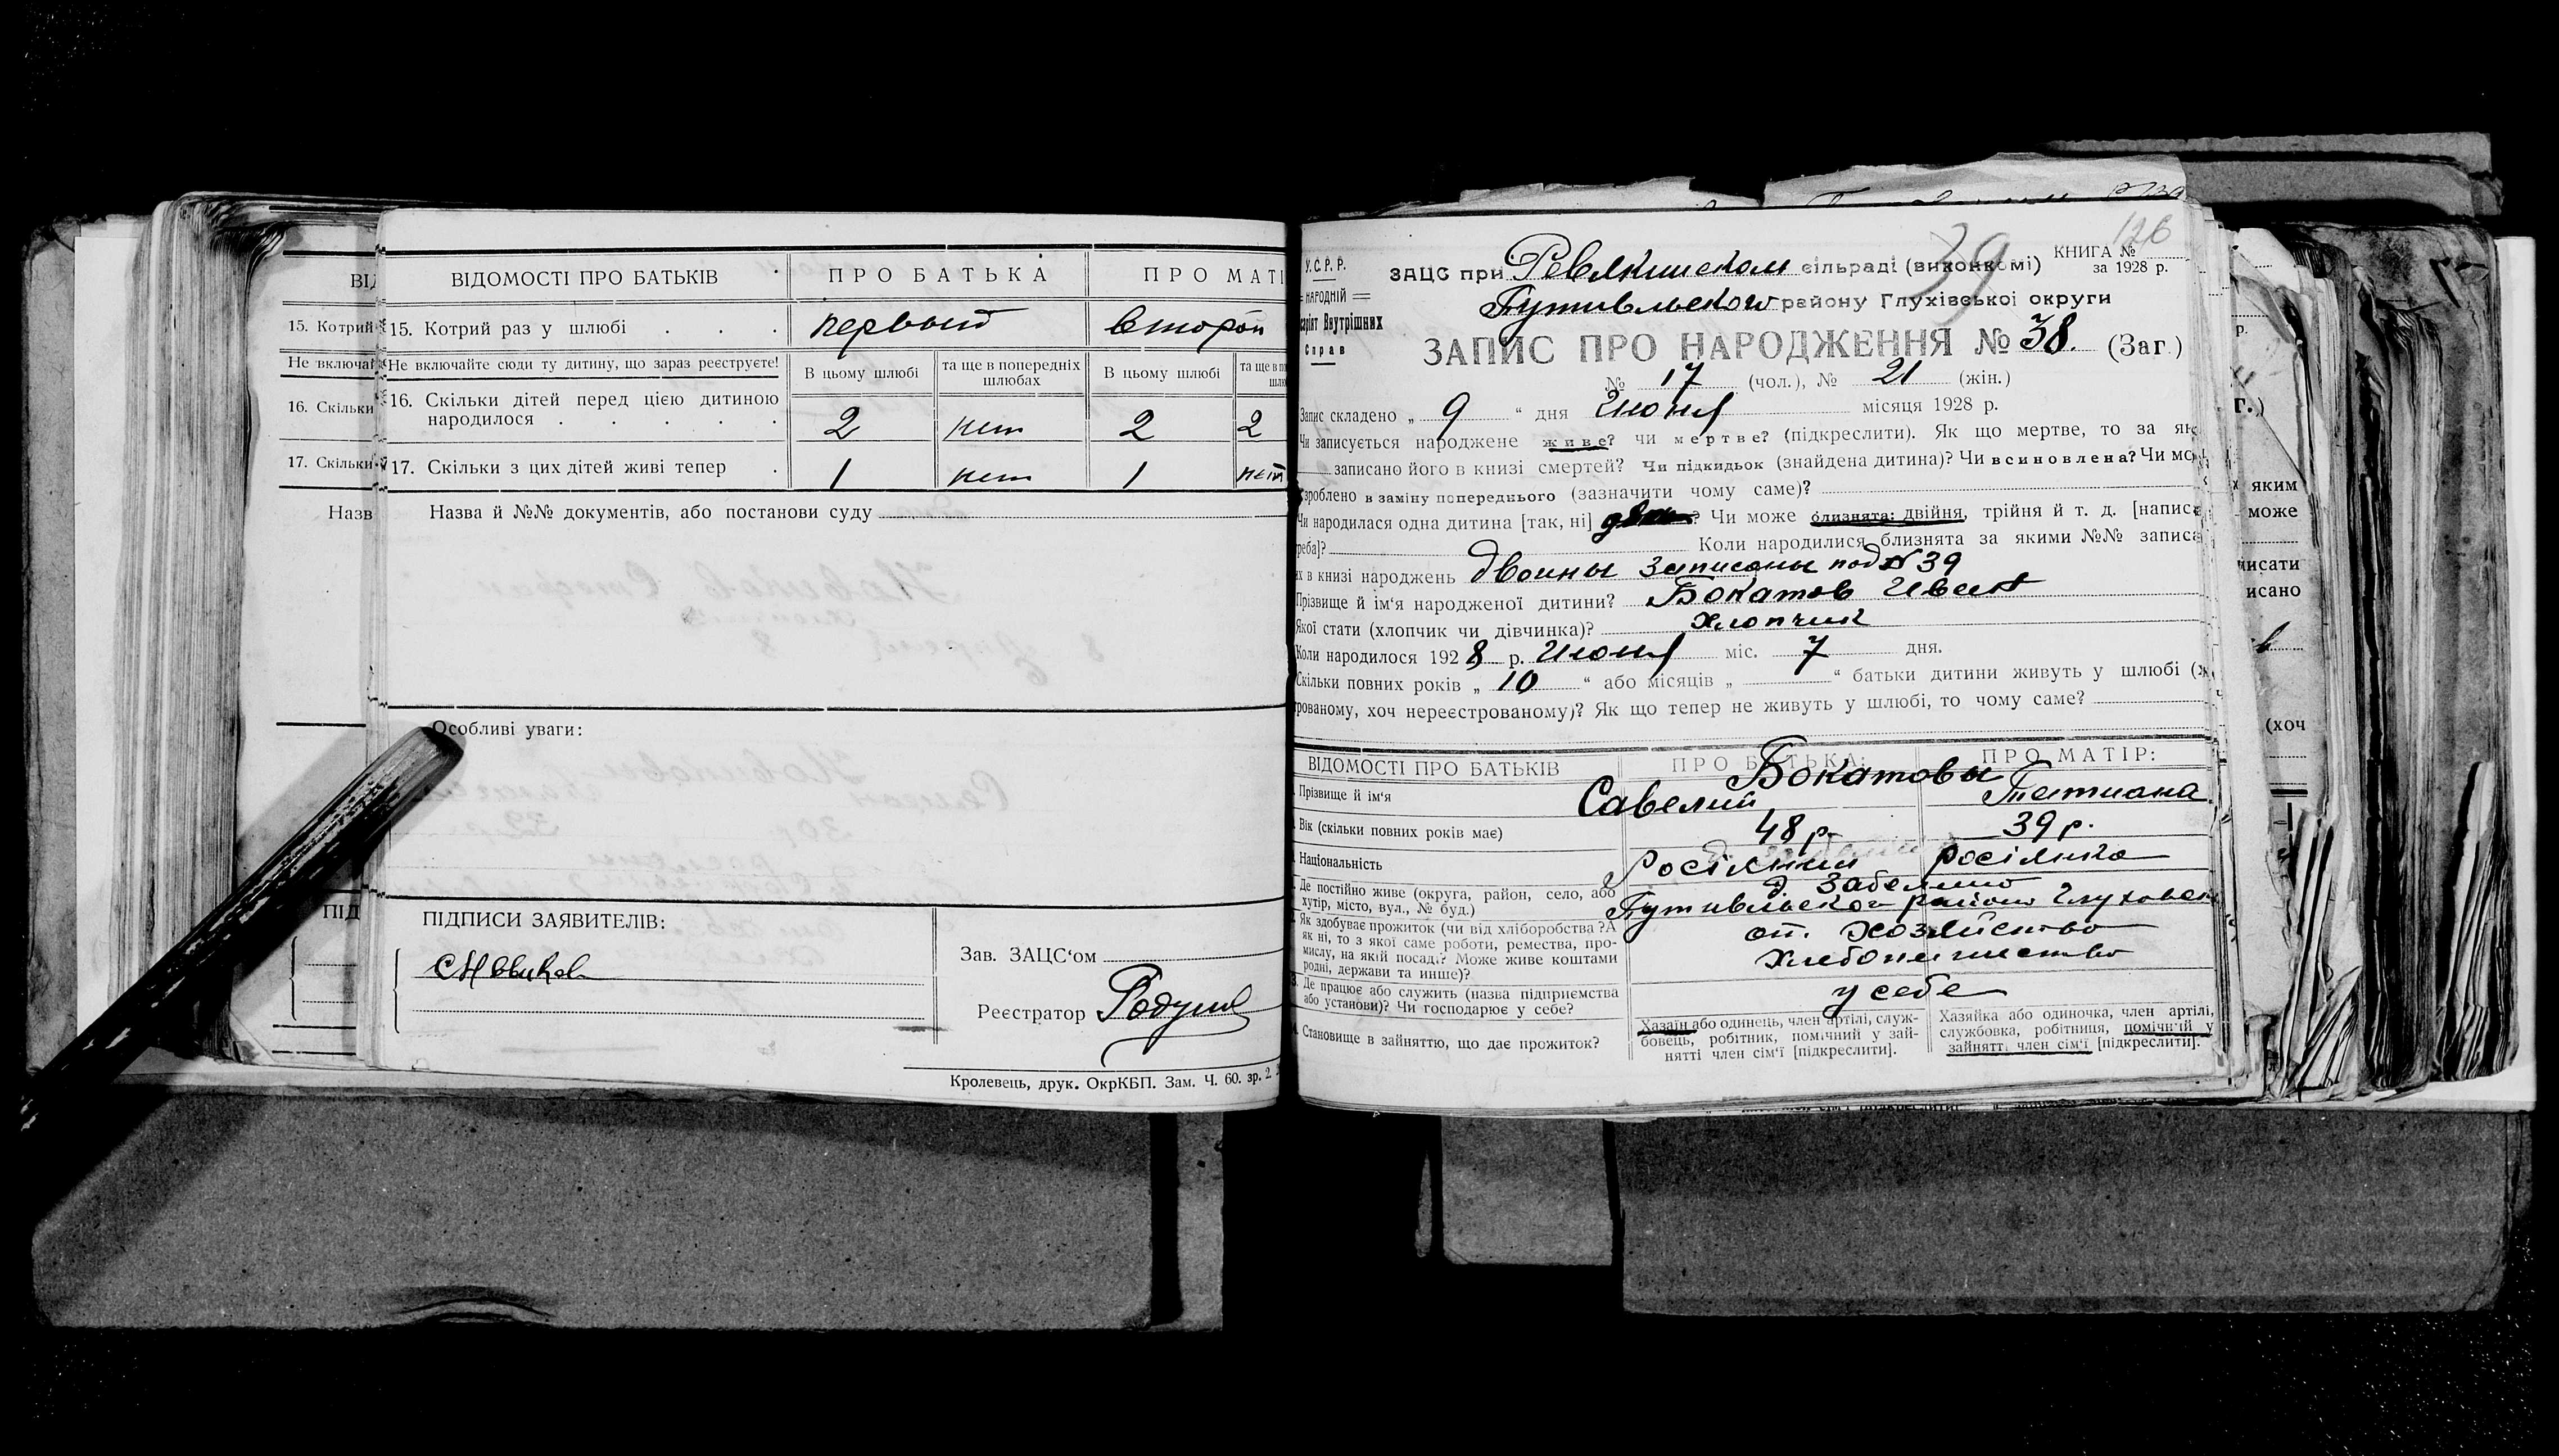 ВІДОМОСТІ ПРО БАТЬКІВ ПРО БАТЬКА ПРО МАТІ
15. Котрий 15. Котрий раз у шлюбі первый второй
Не включай Не включайте сюди ту дитину, що зараз реєструєте! В цьому шлюбі та ще в попередніх шлюбах В цьому шлюбі
16. Скільки 16. Скільки дітей перед цією дитиною
народилося 2 нет 2 2
17. Скільки 17. Скільки з цих дітей живі тепер 1 нет 1 нет
Назв Назва й №№ документів, або постанови суду
Особливі уваги:
ПІД ПІДПИСИ ЗАЯВИТЕЛІВ:
Зав. ЗАЦС‘ом
Реєстратор
Кролевець, друк. ОкрКБП. Зам. Ч. 60. зр. 2.
У.С.Р.Р.
НАРОДНІЙ
Внутрішних
Справ
126
39
КНИГА №
за 1928 р.
ЗАЦС при сільраді (виконкомі)
Путивльського району Глухівської округи
ЗАПИС ПРО НАРОДЖЕННЯ № 38. (Заг.)
№ 17 (чол.), № 21 (жін.)
Запис складено „ 9 “ дня Июня місяця 1928 р.
Чи записується народжене живе? чи мертве? (підкреслити). Як що мертве, то за як
записано його в книзі смертей? Чи підкидьок (знайдена дитина)? Чи всиновлена? Чи мо
зроблено в заміну попереднього (зазначити чому саме)?
Чи народилася одна дитина [так, ні] ? Чи може близнята: двійня, трійня й т. д. [напис
треба]? Коли народилися близнята за якими №№ запис
їх в книзі народжень двоины записаны под № 39
Прізвище й ім‘я народженої дитини? Бокатов Иван
Якої стати (хлопчик чи дівчинка)? Хлопчик
Коли народилося 1928 р. Июня міс. 7 дня.
Скільки повних років „ 10 “ або місяців „ “ батьки дитини живуть у шлюбі
рованому, хоч нереєстрованому)? Як що тепер не живуть у шлюбі, то чому саме?
ВІДОМОСТІ ПРО БАТЬКІВ ПРО БАТЬКА: ПРО МАТІР:
Бокатовы
Прізвище й ім‘я Савелий Татиана
Вік (скільки повних років має) 48 р. 39 р.
Національність росіянка
Де постійно живе (округа, район, село, або
хутір, місто, вул., № буд.)
Як здобуває прожиток (чи від хліборобства? А
як ні, то з якої саме роботи, ремества, про-
мислу, на якій посаді? Може живе коштами
родні, держави та инше)?
от. Хозяйство
Де працює або служить (назва підприємства
або установи)? Чи господарює у себе? у себе
Становище в зайняттю, що дає прожиток?
Хазаїн або одинець, член артілі, служ-
бовець, робітник, помічний у зай-
нятті член сім‘ї [підкреслити].
Хазяйка або одиночка, член артілі,
службовка, робітниця, помічний у
зайнятті член сім‘ї [підкреслити].
яким
може
писати
исано
(хоч